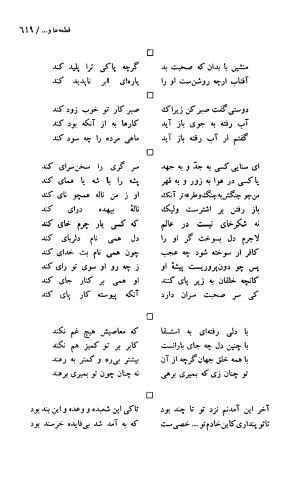 قطعه‌ها و... / ۶۱۹
منشین با بدان که صحبت بد گرچه پاکی ترا پلید کند
آفتاب ارچه روشن‌ست او را پاره‌ای ابر ناپدید کند
دوستی گفت صبر کن زیراک صبر کار تو خوب زود کند
آب رفته به جوی باز آید کارها به از آنکه بود کند
گفتم ار آب رفته باز آید ماهی مرده را چه سود کند
ای سنایی کسی به جد و به جهد سر گری را سخن‌سرای کند
یا کسی در هوا به زور و به قهر پشه را با شه یا همای کند
باز رفتن بر اشترست ولیک نالهٔ بیهده درای کند
نه شکرخای نیست در عالم که کسی یار چرم خای کند
لاجرم دل بسوخت گر او را دل همی نام دلربای کند
کافر او سوخته شد چه عجب چون همی نام بت خدای کند
پس چو دون‌پروریست پیشهٔ او ز چه رو او سوی تو رای کند
کانچه خلقان به زیر پای کنند او همی بر کنار جای کند
کی سر صحبت سران دارد آنکه پیوسته کار پای کند
با دلی رفته‌ای به استسقا که معاصیش هیچ غم نکند
با چنین دل چه جای بارانست کابر بر تو کمیز هم نکند
با همه خلق جهان گرچه از آن بیشتر بی‌ره و کمتر به رهند
تو چنان زی که بمیری برهی نه چنان چون تو بمیری برهند
آخر این آمدنم نزد تو تا چند بود تاکی این شعبده و وعده و این بند بود
تا تو پنداری کاین خادم تو... خصی‌ست که به آمد شد بی‌فایده خرسند بود